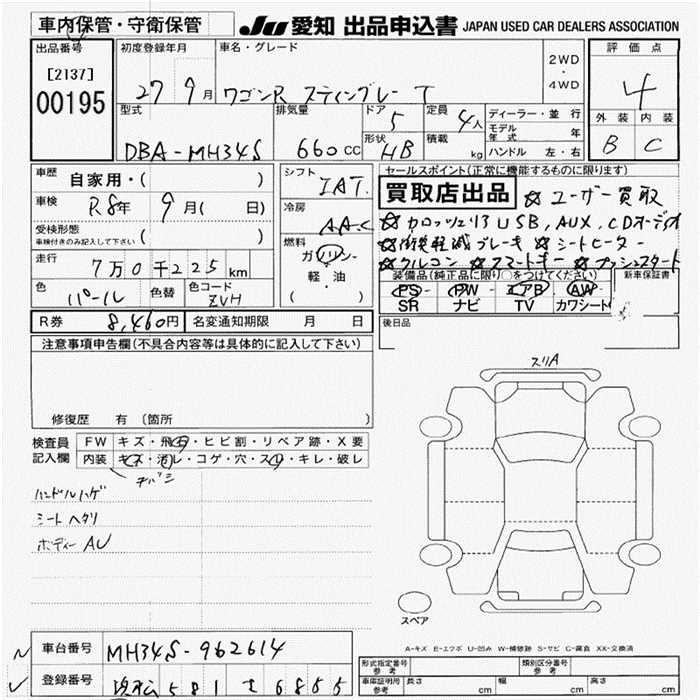 車内保管・守衛保管
JU 愛知 出品申込書 JAPAN USED CAR DEALERS ASSOCIATION
出品番号
[2137]
00195
初度登録年月
27 9月
車名・グレード
ワゴンR スティングレー T
2WD
・
4WD
評価点
4
外装 内装
B C
型式
DBA-MH34S
排気量
660cc
ドア
5
形状
HB
定員
4人
積載
kg
ディーラー・並行
モデル年式 年
ハンドル 左・右
車歴 自家用・( )
車検 R8年 9月( 日)
受検形態
車検付きのみ記入して下さい ( )
走行 7万0千225km
色 パール
色替
色コード
ZVH
シフト
IAT
冷房
AAC
燃料
ガソリン・
軽・油
( )
セールスポイント(正常に機能するものに限ります)
買取店出品 ☆ユーザー買取
☆カロッツェリア USB, AUX, CDオーディオ
☆衝突軽減ブレーキ ☆シートヒーター
☆クルコン ☆スマートキー ☆プッシュスタート
装備品(純正品に限り○をつけてください)
PS PW エアB AW
SR ナビ TV カワシート
新車保証書
後日品
R券 8,460円
名変通知期限 月 日
注意事項申告欄(不具合内容等は具体的に記入して下さい)
修復歴 有 (箇所 )
検査員
記入欄
FW キズ・飛石・ヒビ割・リペア跡・X要
内装 キズ・汚レ・コゲ・穴・スレ・キレ・破レ
ハンドルハゲ
シートヘタリ
ボディー AU
スリA
スペア
A-キズ E-エクボ U-凹み W-補修跡 S-サビ C-腐食 XX-交換済
車台番号 MH34S-962614
登録番号 浜松 581 せ 6855
形式指定番号
参考
類別区分番号
参考
車庫証明用
参考
長さ cm
幅 cm
高さ cm